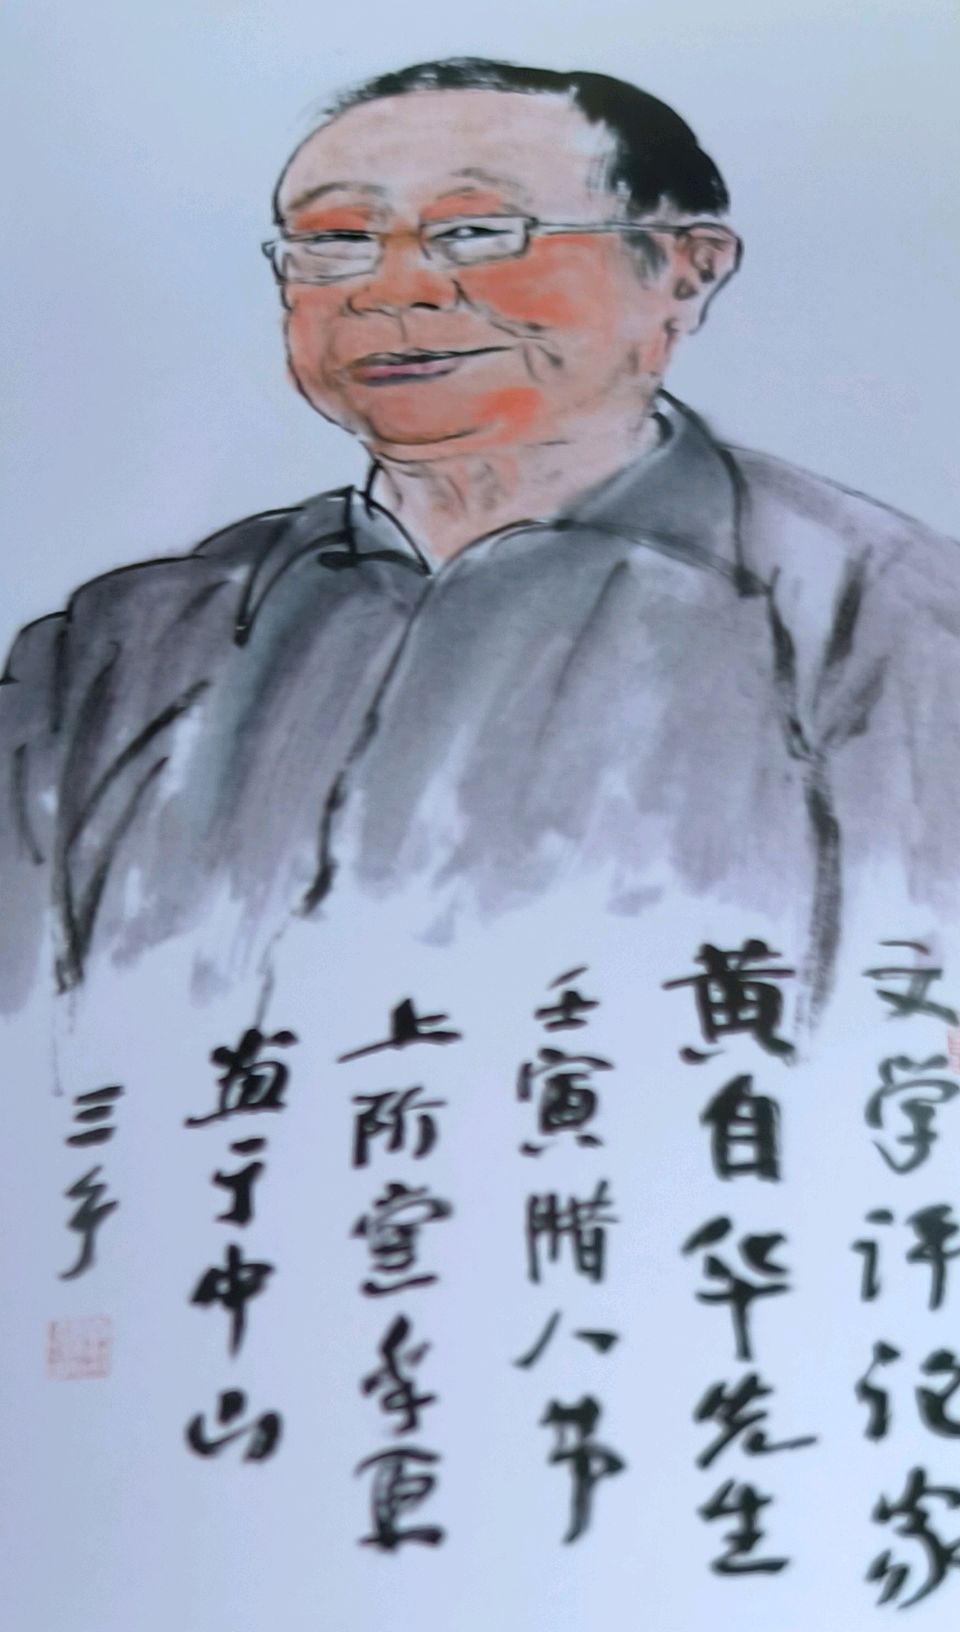 文学评论家
黄自华先生
壬寅腊八节
上阶堂李更
画于中山
三乡